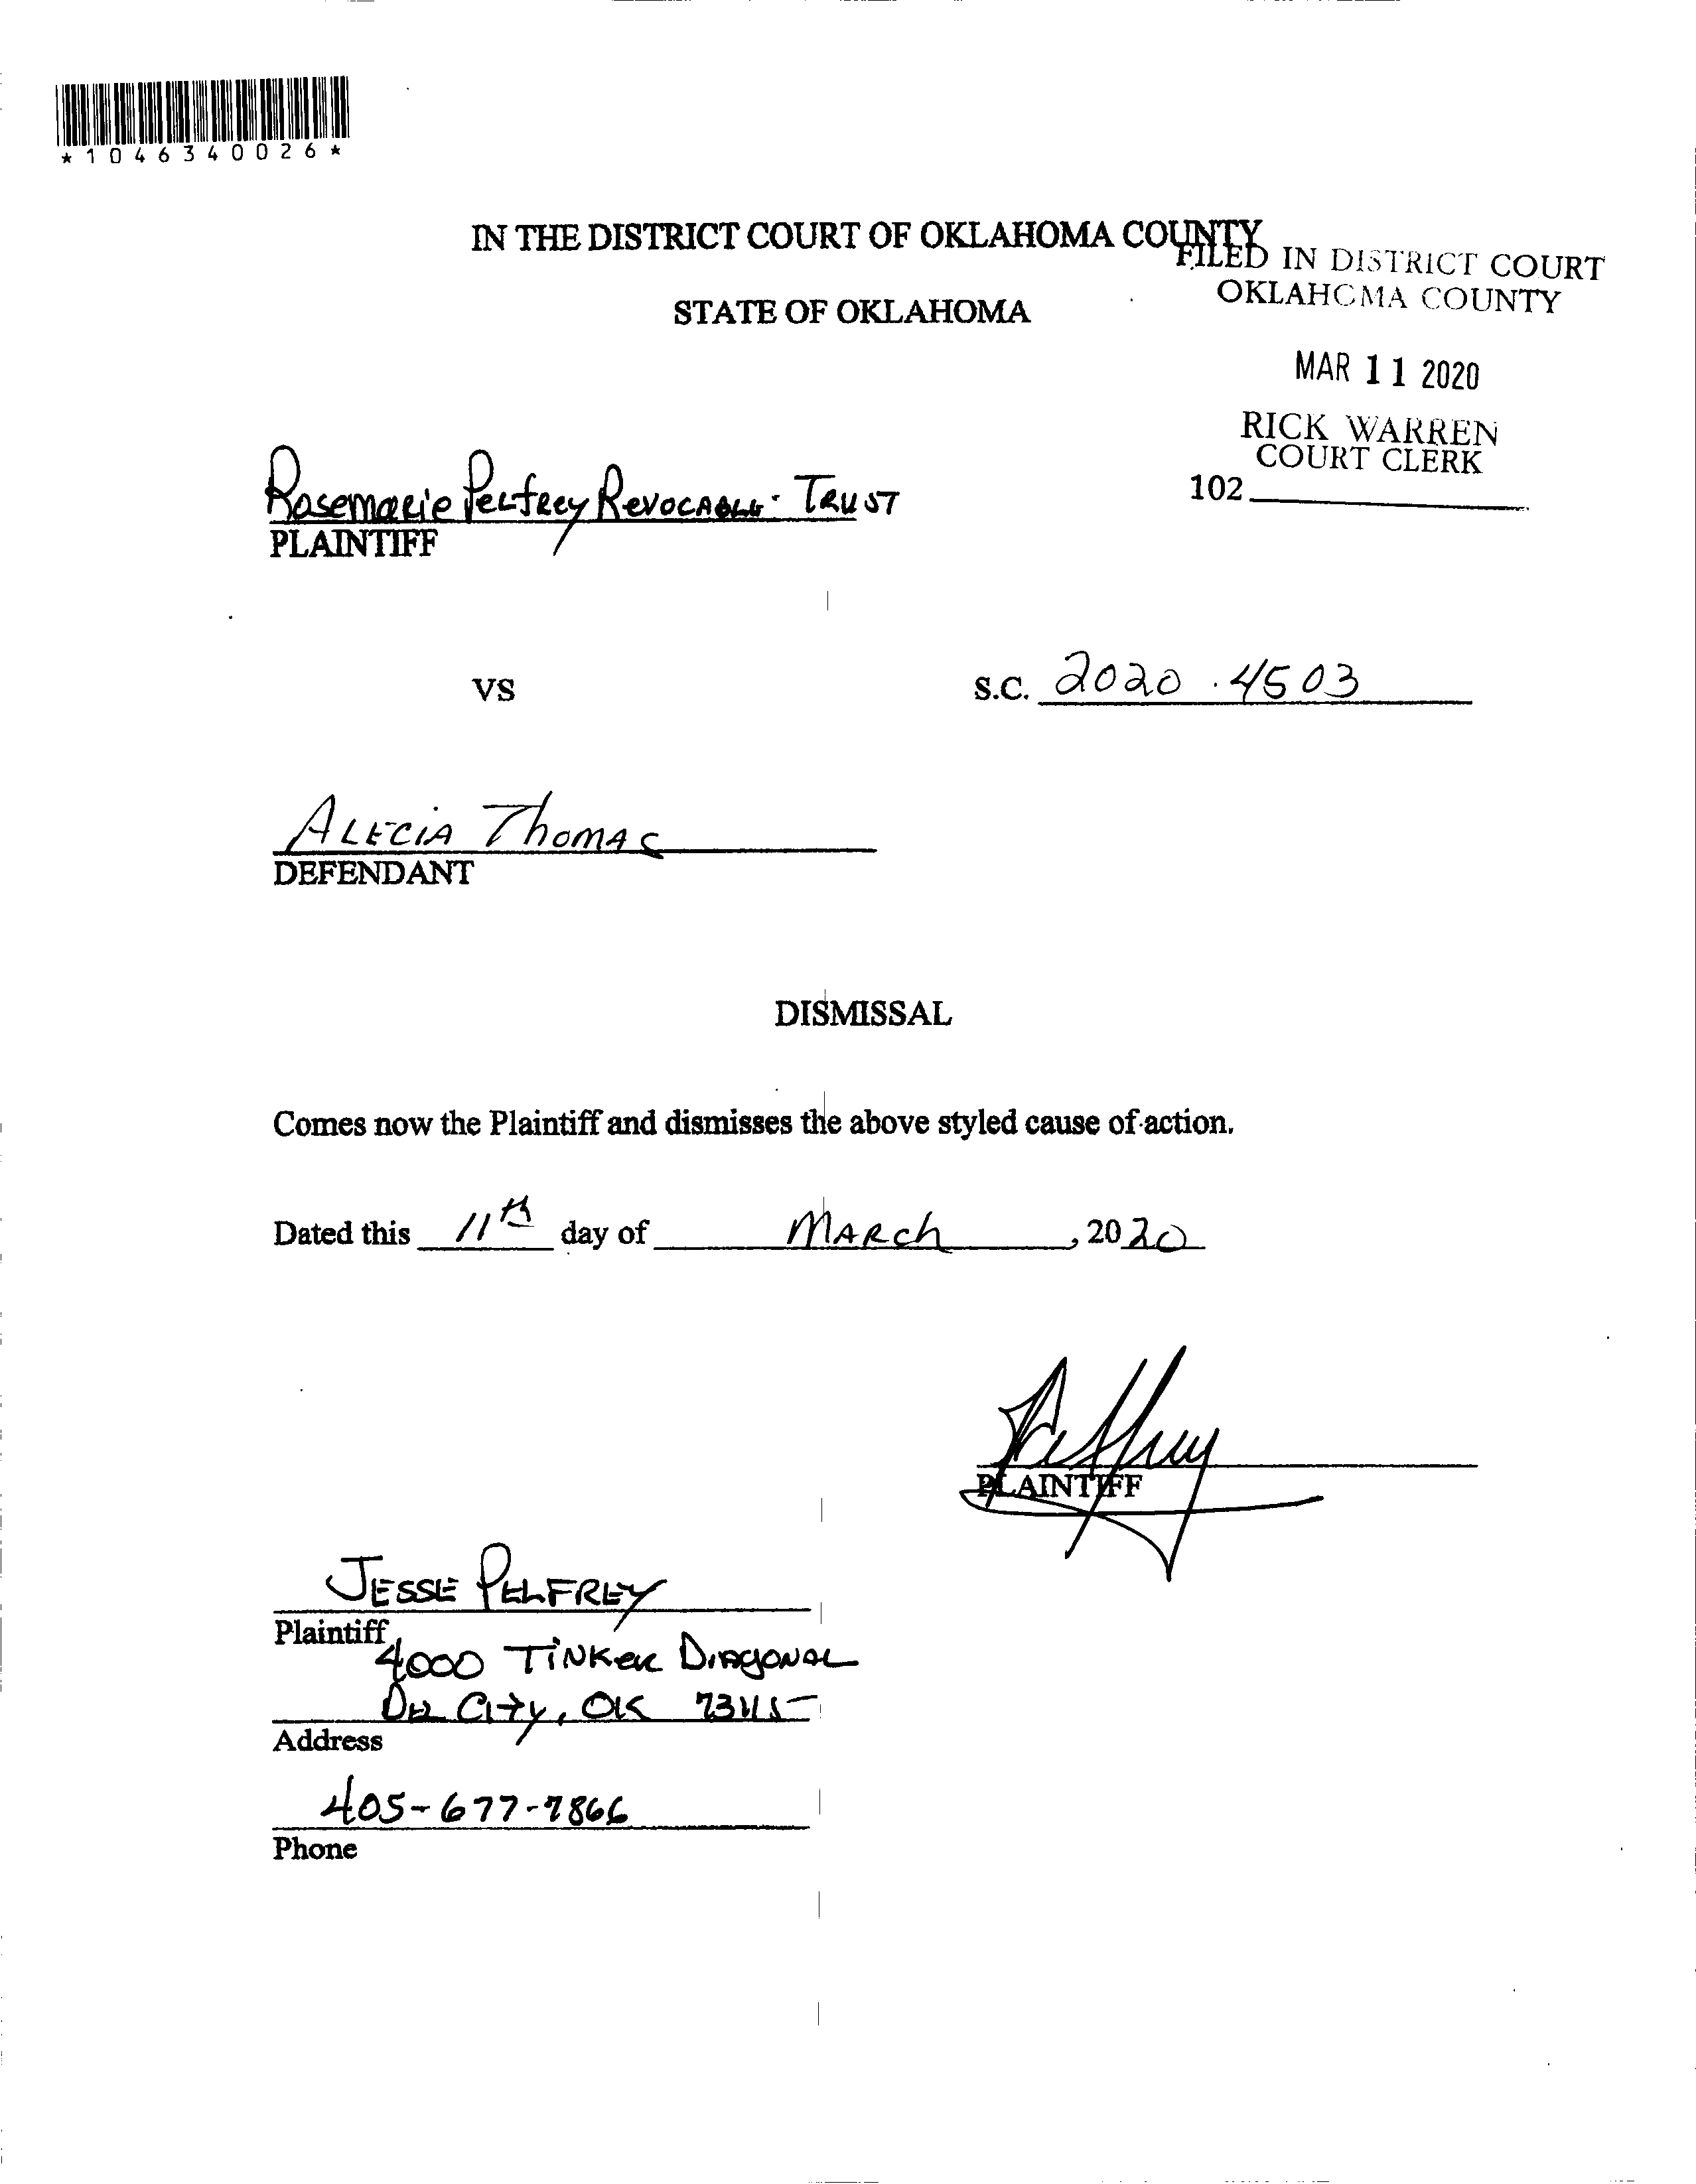 *1046340026*
IN THE DISTRICT COURT OF OKLAHOMA COUNTY
STATE OF OKLAHOMA
FILED IN DISTRICT COURT
OKLAHOMA COUNTY
MAR 11 2020
RICK WARREN
COURT CLERK
102
Rosemarie Pelfrey Revocable Trust
PLAINTIFF
VS
S.C. 2020-4503
Alecia Thomas
DEFENDANT
DISMISSAL
Comes now the Plaintiff and dismisses the above styled cause of action.
Dated this 11th day of March, 2020
Pelfrey
PLAINTIFF
Jesse Pelfrey
Plaintiff
4000 Tinker Diagonal
Del City, OK 73115
Address
405-677-7866
Phone